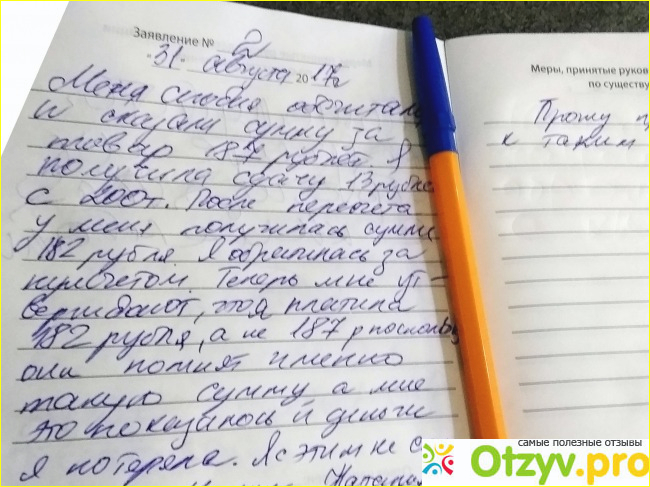 Заявление № 2
"31" августа 2017г
Меня сегодня обсчитали
и сказали сумму за
товар 187 рублей. Я
получила сдачу 13 рубле
с 200т. После пересчета
у меня получилась сумма
182 рубля. Я обратилась за
Теперь мне ут-
верждают, что я платила
182 рубля, а не 187 р поскольку
они помнят именно
такую сумму а мне
это показалось и деньги
я потеряла. Я с этим не с
Меры, принятые руков
по существу
Прошу п
к таким
самые полезные отзывы
Otzyv.pro